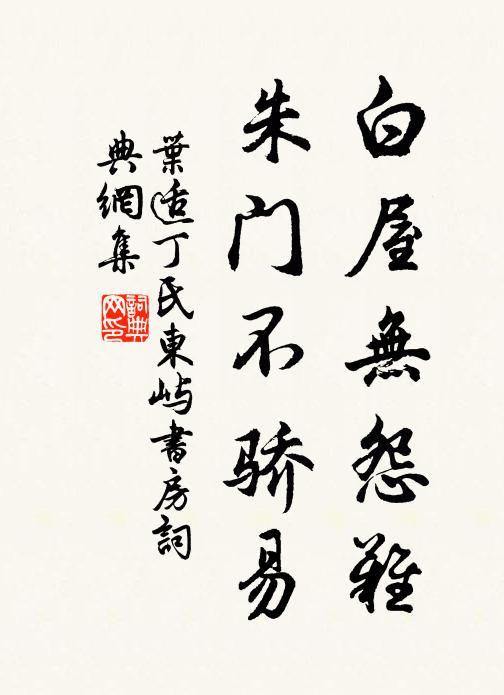 白屋無怨難
朱门不骄易
葉适丁氏東嶼書房詞
典網集
詞典网印